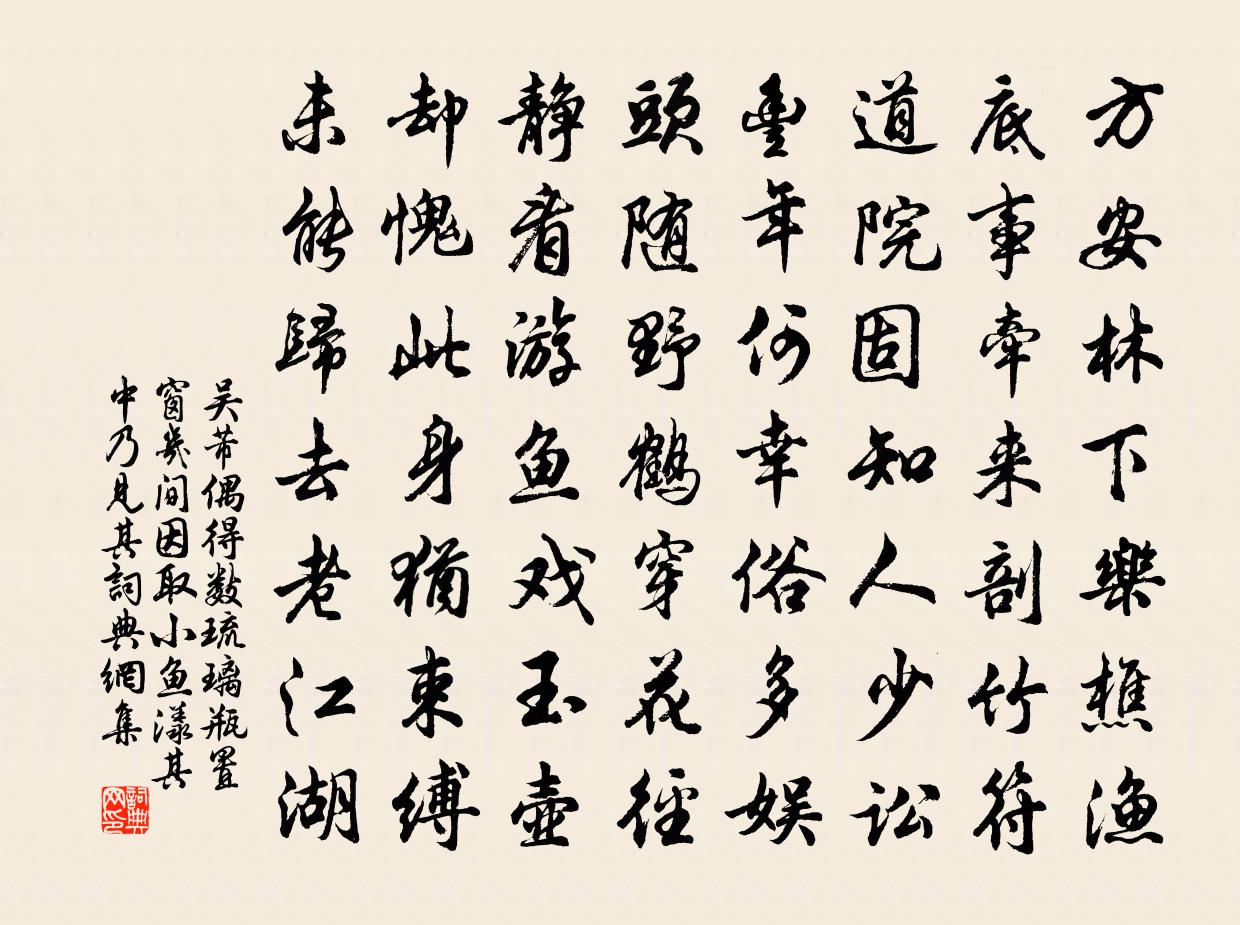 方安林下樂樵漁
底事牽来剖竹符
道院固知人少訟
豊年何幸俗多娱
頭随野鶴穿花徑
静看游鱼戏玉壷
却愧此身猶束缚
未能歸去老江湖
吴芾偶得数琉璃瓶置
窗幾间因取小鱼漾其
中乃見其詞典網集
詞典网印